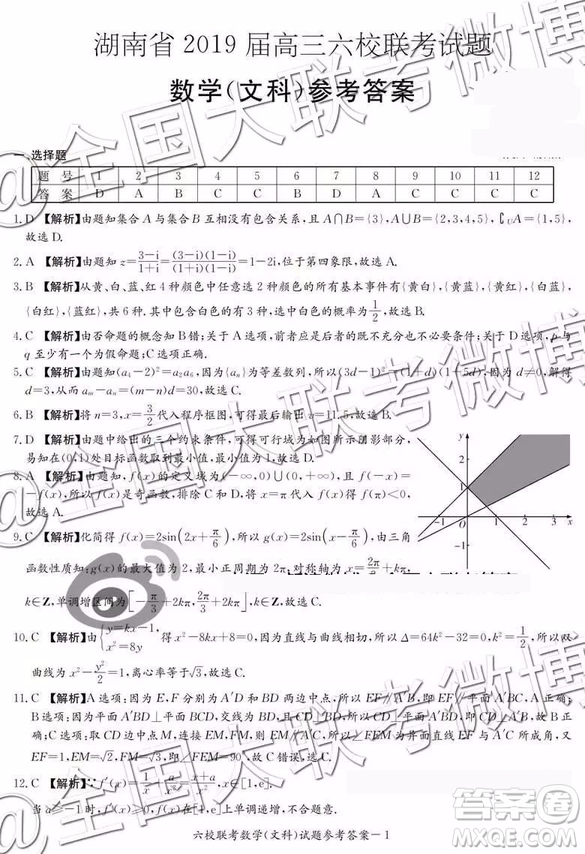 湖南省 2019 届高三六校联考试题
数学(文科)参考答案
一、选择题
题号 1 2 3 4 5 6 7 8 9 10 11 12
答案 D A B C C B D A C C C C
1. D 【解析】由题知集合A与集合B互相没有包含关系，且A∩B={3}，A∪B={2,3,4,5}，∁UA={1,5}，
故选D.
2. A 【解析】由题知z=(3-i)/(1+i)=(3-i)(1-i)/(1+i)(1-i)=1-2i，位于第四象限，故选A.
3. B 【解析】从黄、白、蓝、红4种颜色中任意选2种颜色的所有基本事件有{黄白}，{黄蓝}，{黄红}，{白蓝}，
{白红}，{蓝红}，共6种.其中包含白色的有3种，选中白色的概率为1/2，故选B.
4. C 【解析】由否命题的概念知B错；关于A选项，前者应是后者的既不充分也不必要条件；关于D选项，p与
q至少有一个为假命题；C选项正确.
5. C 【解析】由题知(a₄-2)²=a₂a₆，因为{aₙ}为等差数列，所以(3d-1)²=(1+d)(1+5d)，因为d≠0，解得
d=3，从而aₘ-aₙ=(m-n)d=30，故选C.
6. B 【解析】将n=3，x=3/2代入程序框图，可以输出的结果为n=11.5，故选B.
7. D 【解析】由题中给出的三个约束条件，可得可行域为如图所示阴影部分，
易知在(0,1)处目标函数取到最小值，最小值为1，故选D.
8. A 【解析】由题知，f(x)的定义域为(-∞,0)∪(0,+∞)，且f(-x)=
-f(x)，所以f(x)是奇函数，排除C和D，将x=π代入f(x)得f(π)<0，
故选A.
9. C 【解析】化简得f(x)=2sin(2x+π/6)，所以g(x)=2sin(x+π/6)，由三角
函数性质知：g(x)的最大值为2，最小正周期为2π，对称轴为x=2π/6+kπ，
k∈Z，单调增区间为[-π/3+2kπ,
k∈Z，故选C.
10. C 【解析】由{y=kx-1，x²=8y 得x²-8kx+8=0，因为直线与曲线相切，所以Δ=64k²-32=0，k²=1/2，所以双
曲线为x²-y²/2=1，离心率等于√3，故选C.
11. C 【解析】A选项：因为E、F分别为A′D和BD两边中点，所以EF∥A′B，即EF∥平面A′BC，A正确；B选
项：因为平面A′BD⊥平面BCD，交线为BD，且CD⊥BD，所以CD⊥平面A′BD，即CD⊥A′B，故B正确；C
选项：取CD边中点M，连接EM，FM，则EM∥A′C，所以∠FEM或其补角为异面直线EF与A′C所成角，又
EF=1，EM=√2，FM=√3，即∠FEM=90°，故选C.
12. C 【解析】∵f′(x)=1/x+a/x²=(x+a)/x²，
当a≥0时，f(x)在[1,e]上单调递增，不合题意.
y
2
1
-1 O 1 2 3 x
-1
六校联考数学(文科)试题参考答案－1
@全国大联考微博
答案圈